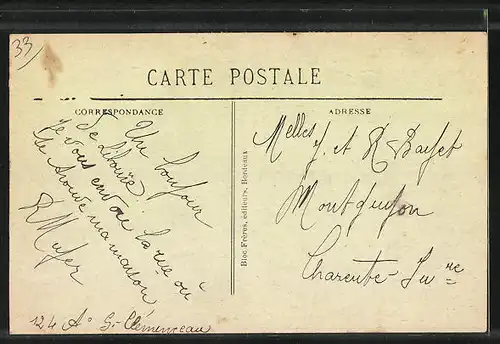 33
CARTE POSTALE
CORRESPONDANCE
ADRESSE
Un bonjour
de Libourne.
Je vous envoie la rue où
se trouve ma maison
R Muyer
124 Ae G. Clémenceau
Bloc Frères, éditeurs, Bordeaux
Melles J. et R Barfet
Montguyon
Charente-Inre